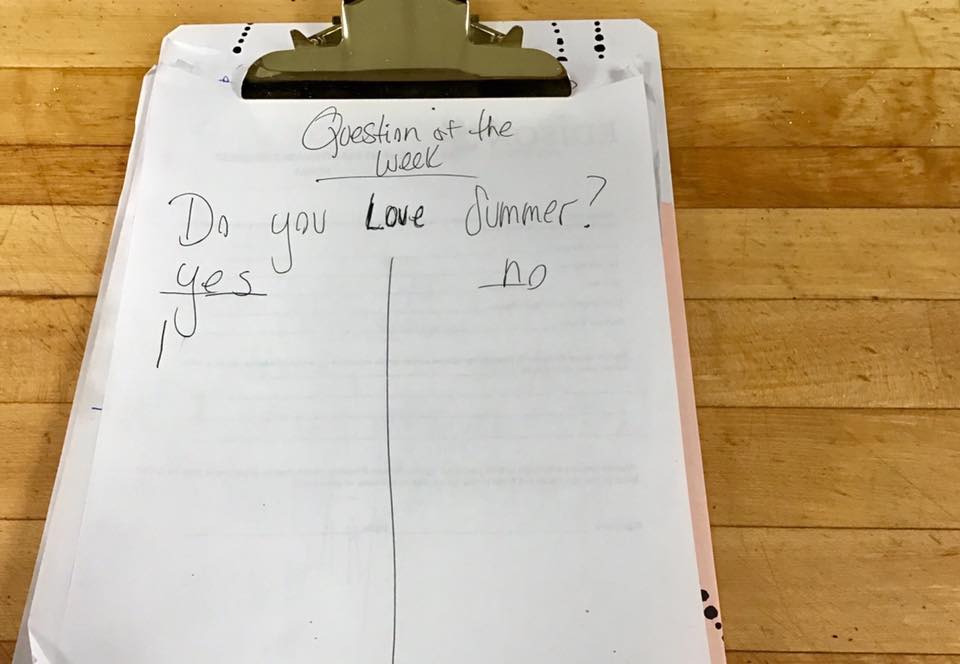 Question of the
week
Do you Love Summer?
yes no
|